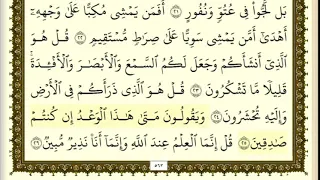 بَل لَّجُّوا۟ فِى عُتُوٍّ وَنُفُورٍ ٢١ أَفَمَن يَمْشِى مُكِبًّا عَلَىٰ وَجْهِهِۦٓ
أَهْدَىٰٓ أَمَّن يَمْشِى سَوِيًّا عَلَىٰ صِرَٰطٍ مُّسْتَقِيمٍ ٢٢ قُلْ هُوَ
ٱلَّذِىٓ أَنشَأَكُمْ وَجَعَلَ لَكُمُ ٱلسَّمْعَ وَٱلْأَبْصَٰرَ وَٱلْأَفْـِٔدَةَ
قَلِيلًا مَّا تَشْكُرُونَ ٢٣ قُلْ هُوَ ٱلَّذِى ذَرَأَكُمْ فِى ٱلْأَرْضِ
وَإِلَيْهِ تُحْشَرُونَ ٢٤ وَيَقُولُونَ مَتَىٰ هَٰذَا ٱلْوَعْدُ إِن كُنتُمْ
صَٰدِقِينَ ٢٥ قُلْ إِنَّمَا ٱلْعِلْمُ عِندَ ٱللَّهِ وَإِنَّمَآ أَنَا۠ نَذِيرٌ مُّبِينٌ ٢٦
٥٦٣